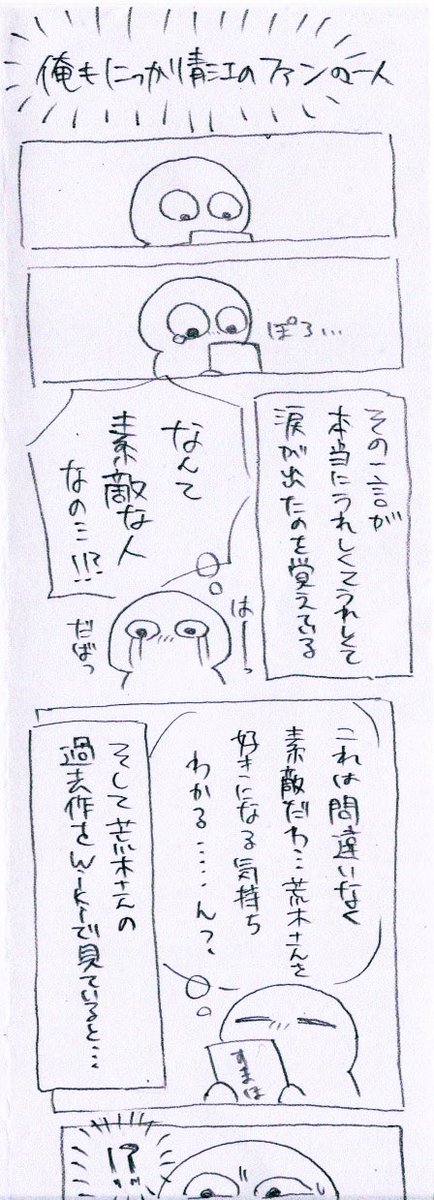 俺もにっかり青江のファンの一人
ぽろ…
その一言が
本当にうれしくてうれしくて
涙が出たのを覚えている
なんて
素敵な人
なの…!!?
はーっ
だばっ
これは間違いなく
素敵だわ…荒木さんを
好きになる気持ち
わかる……ん?
すまほ
そして荒木さんの
過去作をwikiで見ていると…
!?